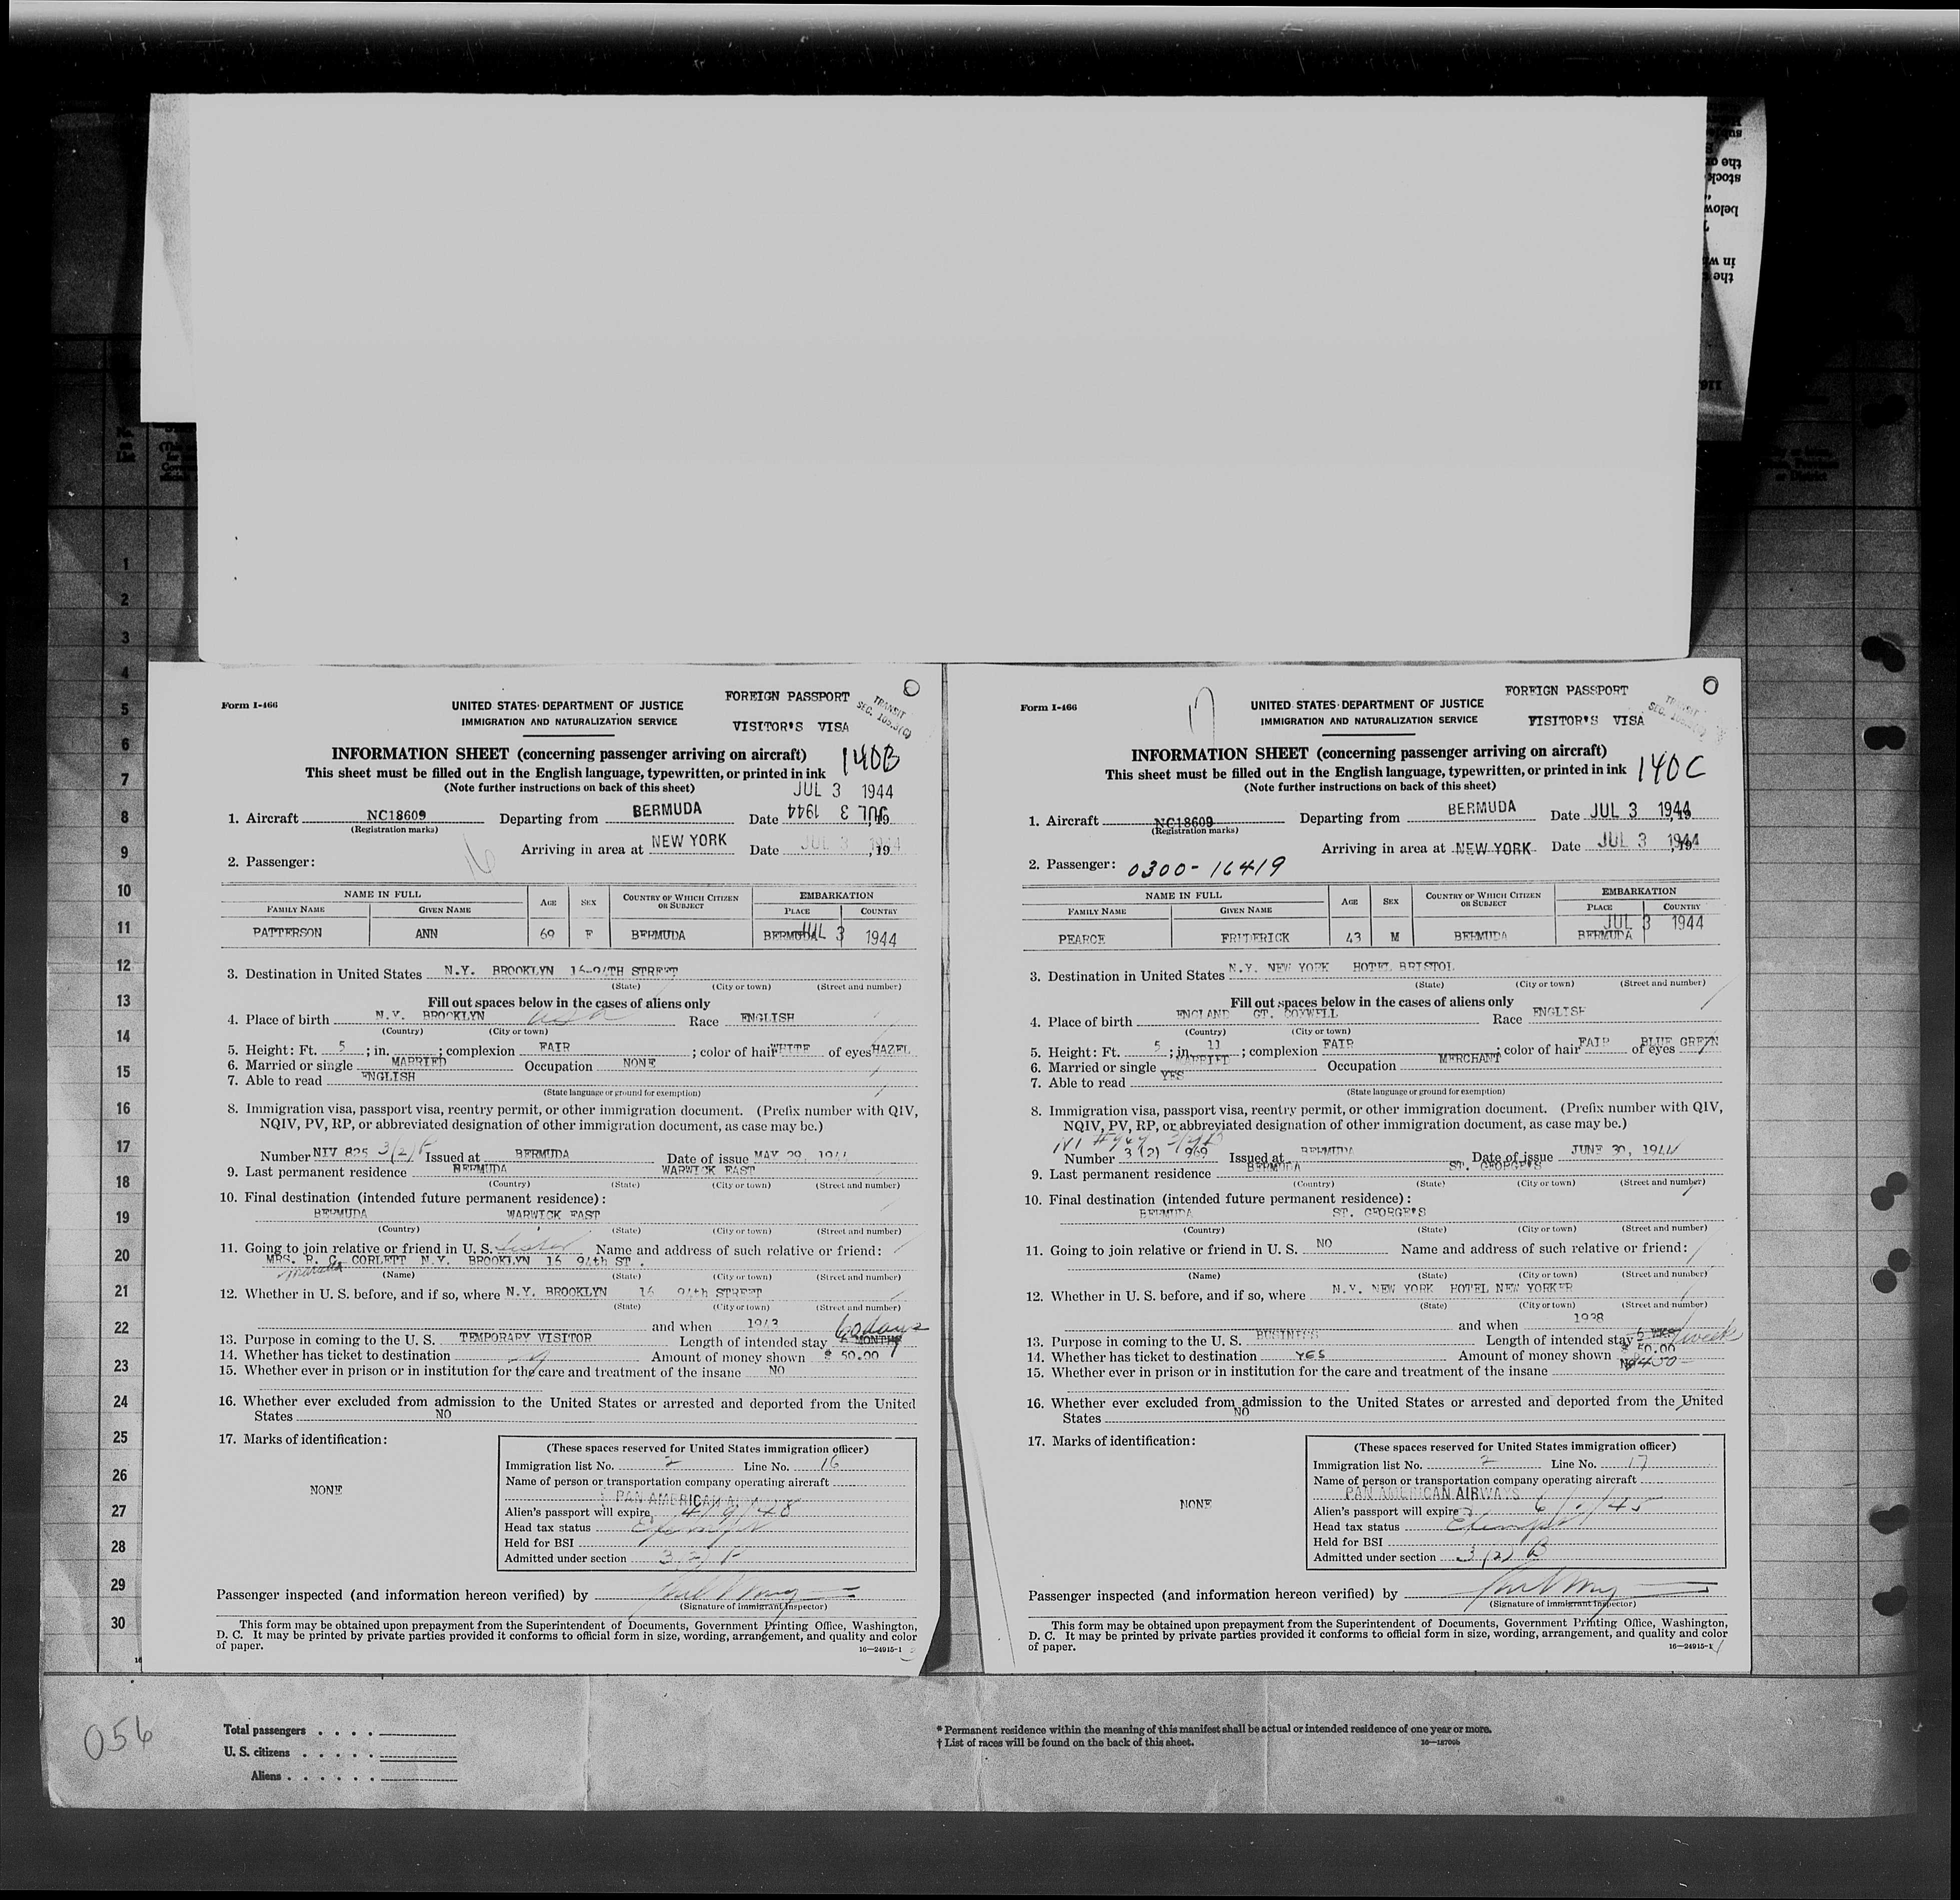 No.
1
2
3
4
5
6
7
8
9
10
11
12
13
14
15
16
17
18
19
20
21
22
23
24
25
26
27
28
29
30
Form I-466
UNITED STATES DEPARTMENT OF JUSTICE
IMMIGRATION AND NATURALIZATION SERVICE
FOREIGN PASSPORT
VISITOR'S VISA
TRANSIT
SEC. 105.3(C)
INFORMATION SHEET (concerning passenger arriving on aircraft)
140B
This sheet must be filled out in the English language, typewritten, or printed in ink
(Note further instructions on back of this sheet)
JUL 3 1944
1. Aircraft NC18609 Departing from BERMUDA Date JUL 3 1944, 19
(Registration marks)
Arriving in area at NEW YORK Date JUL 3 1944, 19
16
2. Passenger:
NAME IN FULL AGE SEX COUNTRY OF WHICH CITIZEN OR SUBJECT EMBARKATION
FAMILY NAME GIVEN NAME PLACE COUNTRY
PATTERSON ANN 69 F BERMUDA BERMUDA JUL 3 1944
3. Destination in United States N.Y. BROOKLYN 16-94TH STREET
(State) (City or town) (Street and number)
Fill out spaces below in the cases of aliens only
4. Place of birth N.Y. BROOKLYN USA Race ENGLISH
(Country) (City or town)
5. Height: Ft. 5; in. ; complexion FAIR; color of hair WHITE of eyes HAZEL
6. Married or single MARRIED Occupation NONE
7. Able to read ENGLISH
(State language or ground for exemption)
8. Immigration visa, passport visa, reentry permit, or other immigration document. (Prefix number with QIV,
NQIV, PV, RP, or abbreviated designation of other immigration document, as case may be.)
Number NIV 825 3(2) Issued at BERMUDA Date of issue MAY 29, 1944
9. Last permanent residence BERMUDA WARWICK EAST
(Country) (State) (City or town) (Street and number)
10. Final destination (intended future permanent residence):
BERMUDA WARWICK EAST
(Country) (State) (City or town) (Street and number)
11. Going to join relative or friend in U. S. sister Name and address of such relative or friend:
MRS. R. G. CORLETT N.Y. BROOKLYN 16 94th ST.
(Name) (State) (City or town) (Street and number)
12. Whether in U. S. before, and if so, where N.Y. BROOKLYN 16 94th STREET
(State) (City or town) (Street and number)
and when 1943 60 days
13. Purpose in coming to the U. S. TEMPORARY VISITOR Length of intended stay MONTHS
14. Whether has ticket to destination Amount of money shown $ 50.00
15. Whether ever in prison or in institution for the care and treatment of the insane NO
16. Whether ever excluded from admission to the United States or arrested and deported from the United
States NO
17. Marks of identification:
NONE
(These spaces reserved for United States immigration officer)
Immigration list No. 2 Line No. 16
Name of person or transportation company operating aircraft
PAN AMERICAN AIRWAYS
Alien's passport will expire 4/9/48
Head tax status Exempt
Held for BSI
Admitted under section 3(2)
Passenger inspected (and information hereon verified) by
(Signature of immigrant Inspector)
This form may be obtained upon prepayment from the Superintendent of Documents, Government Printing Office, Washington,
D. C. It may be printed by private parties provided it conforms to official form in size, wording, arrangement, and quality and color
of paper.
16—24915-1
Form I-466
17
UNITED STATES DEPARTMENT OF JUSTICE
IMMIGRATION AND NATURALIZATION SERVICE
FOREIGN PASSPORT
VISITOR'S VISA
INFORMATION SHEET (concerning passenger arriving on aircraft)
140C
This sheet must be filled out in the English language, typewritten, or printed in ink
(Note further instructions on back of this sheet)
1. Aircraft NC18609 Departing from BERMUDA Date JUL 3 1944, 19
(Registration marks)
Arriving in area at NEW YORK Date JUL 3 1944, 19
2. Passenger: 0300-16419
NAME IN FULL AGE SEX COUNTRY OF WHICH CITIZEN OR SUBJECT EMBARKATION
FAMILY NAME GIVEN NAME PLACE COUNTRY
JUL 3 1944
PEARCE FREDERICK 43 M BERMUDA BERMUDA
3. Destination in United States N.Y. NEW YORK HOTEL BRISTOL
(State) (City or town) (Street and number)
Fill out spaces below in the cases of aliens only
4. Place of birth ENGLAND GT. COXWELL Race ENGLISH
(Country) (City or town)
5. Height: Ft. 5; in. 11; complexion FAIR; color of hair FAIR of eyes BLUE GREEN
6. Married or single MARRIED Occupation MERCHANT
7. Able to read YES
(State language or ground for exemption)
8. Immigration visa, passport visa, reentry permit, or other immigration document. (Prefix number with QIV,
NQIV, PV, RP, or abbreviated designation of other immigration document, as case may be.)
Number 3(2) 969 Issued at BERMUDA Date of issue JUNE 30, 1944
9. Last permanent residence BERMUDA ST. GEORGE'S
(Country) (State) (City or town) (Street and number)
10. Final destination (intended future permanent residence):
BERMUDA ST. GEORGE'S
(Country) (State) (City or town) (Street and number)
11. Going to join relative or friend in U. S. NO Name and address of such relative or friend:
(Name) (State) (City or town) (Street and number)
12. Whether in U. S. before, and if so, where N.Y. NEW YORK HOTEL NEW YORKER
(State) (City or town) (Street and number)
and when 1938
13. Purpose in coming to the U. S. BUSINESS Length of intended stay weeks
14. Whether has ticket to destination YES Amount of money shown $ 50.00
15. Whether ever in prison or in institution for the care and treatment of the insane NO
16. Whether ever excluded from admission to the United States or arrested and deported from the United
States NO
17. Marks of identification:
NONE
(These spaces reserved for United States immigration officer)
Immigration list No. 2 Line No. 17
Name of person or transportation company operating aircraft
PAN AMERICAN AIRWAYS
Alien's passport will expire 6/1/45
Head tax status Exempt
Held for BSI
Admitted under section 3(2) B
Passenger inspected (and information hereon verified) by
(Signature of immigrant Inspector)
This form may be obtained upon prepayment from the Superintendent of Documents, Government Printing Office, Washington,
D. C. It may be printed by private parties provided it conforms to official form in size, wording, arrangement, and quality and color
of paper.
16—24915-1
056
Total passengers . . . .
U. S. citizens . . . . .
Aliens . . . . . .
* Permanent residence within the meaning of this manifest shall be actual or intended residence of one year or more.
† List of races will be found on the back of this sheet.
16—18700b